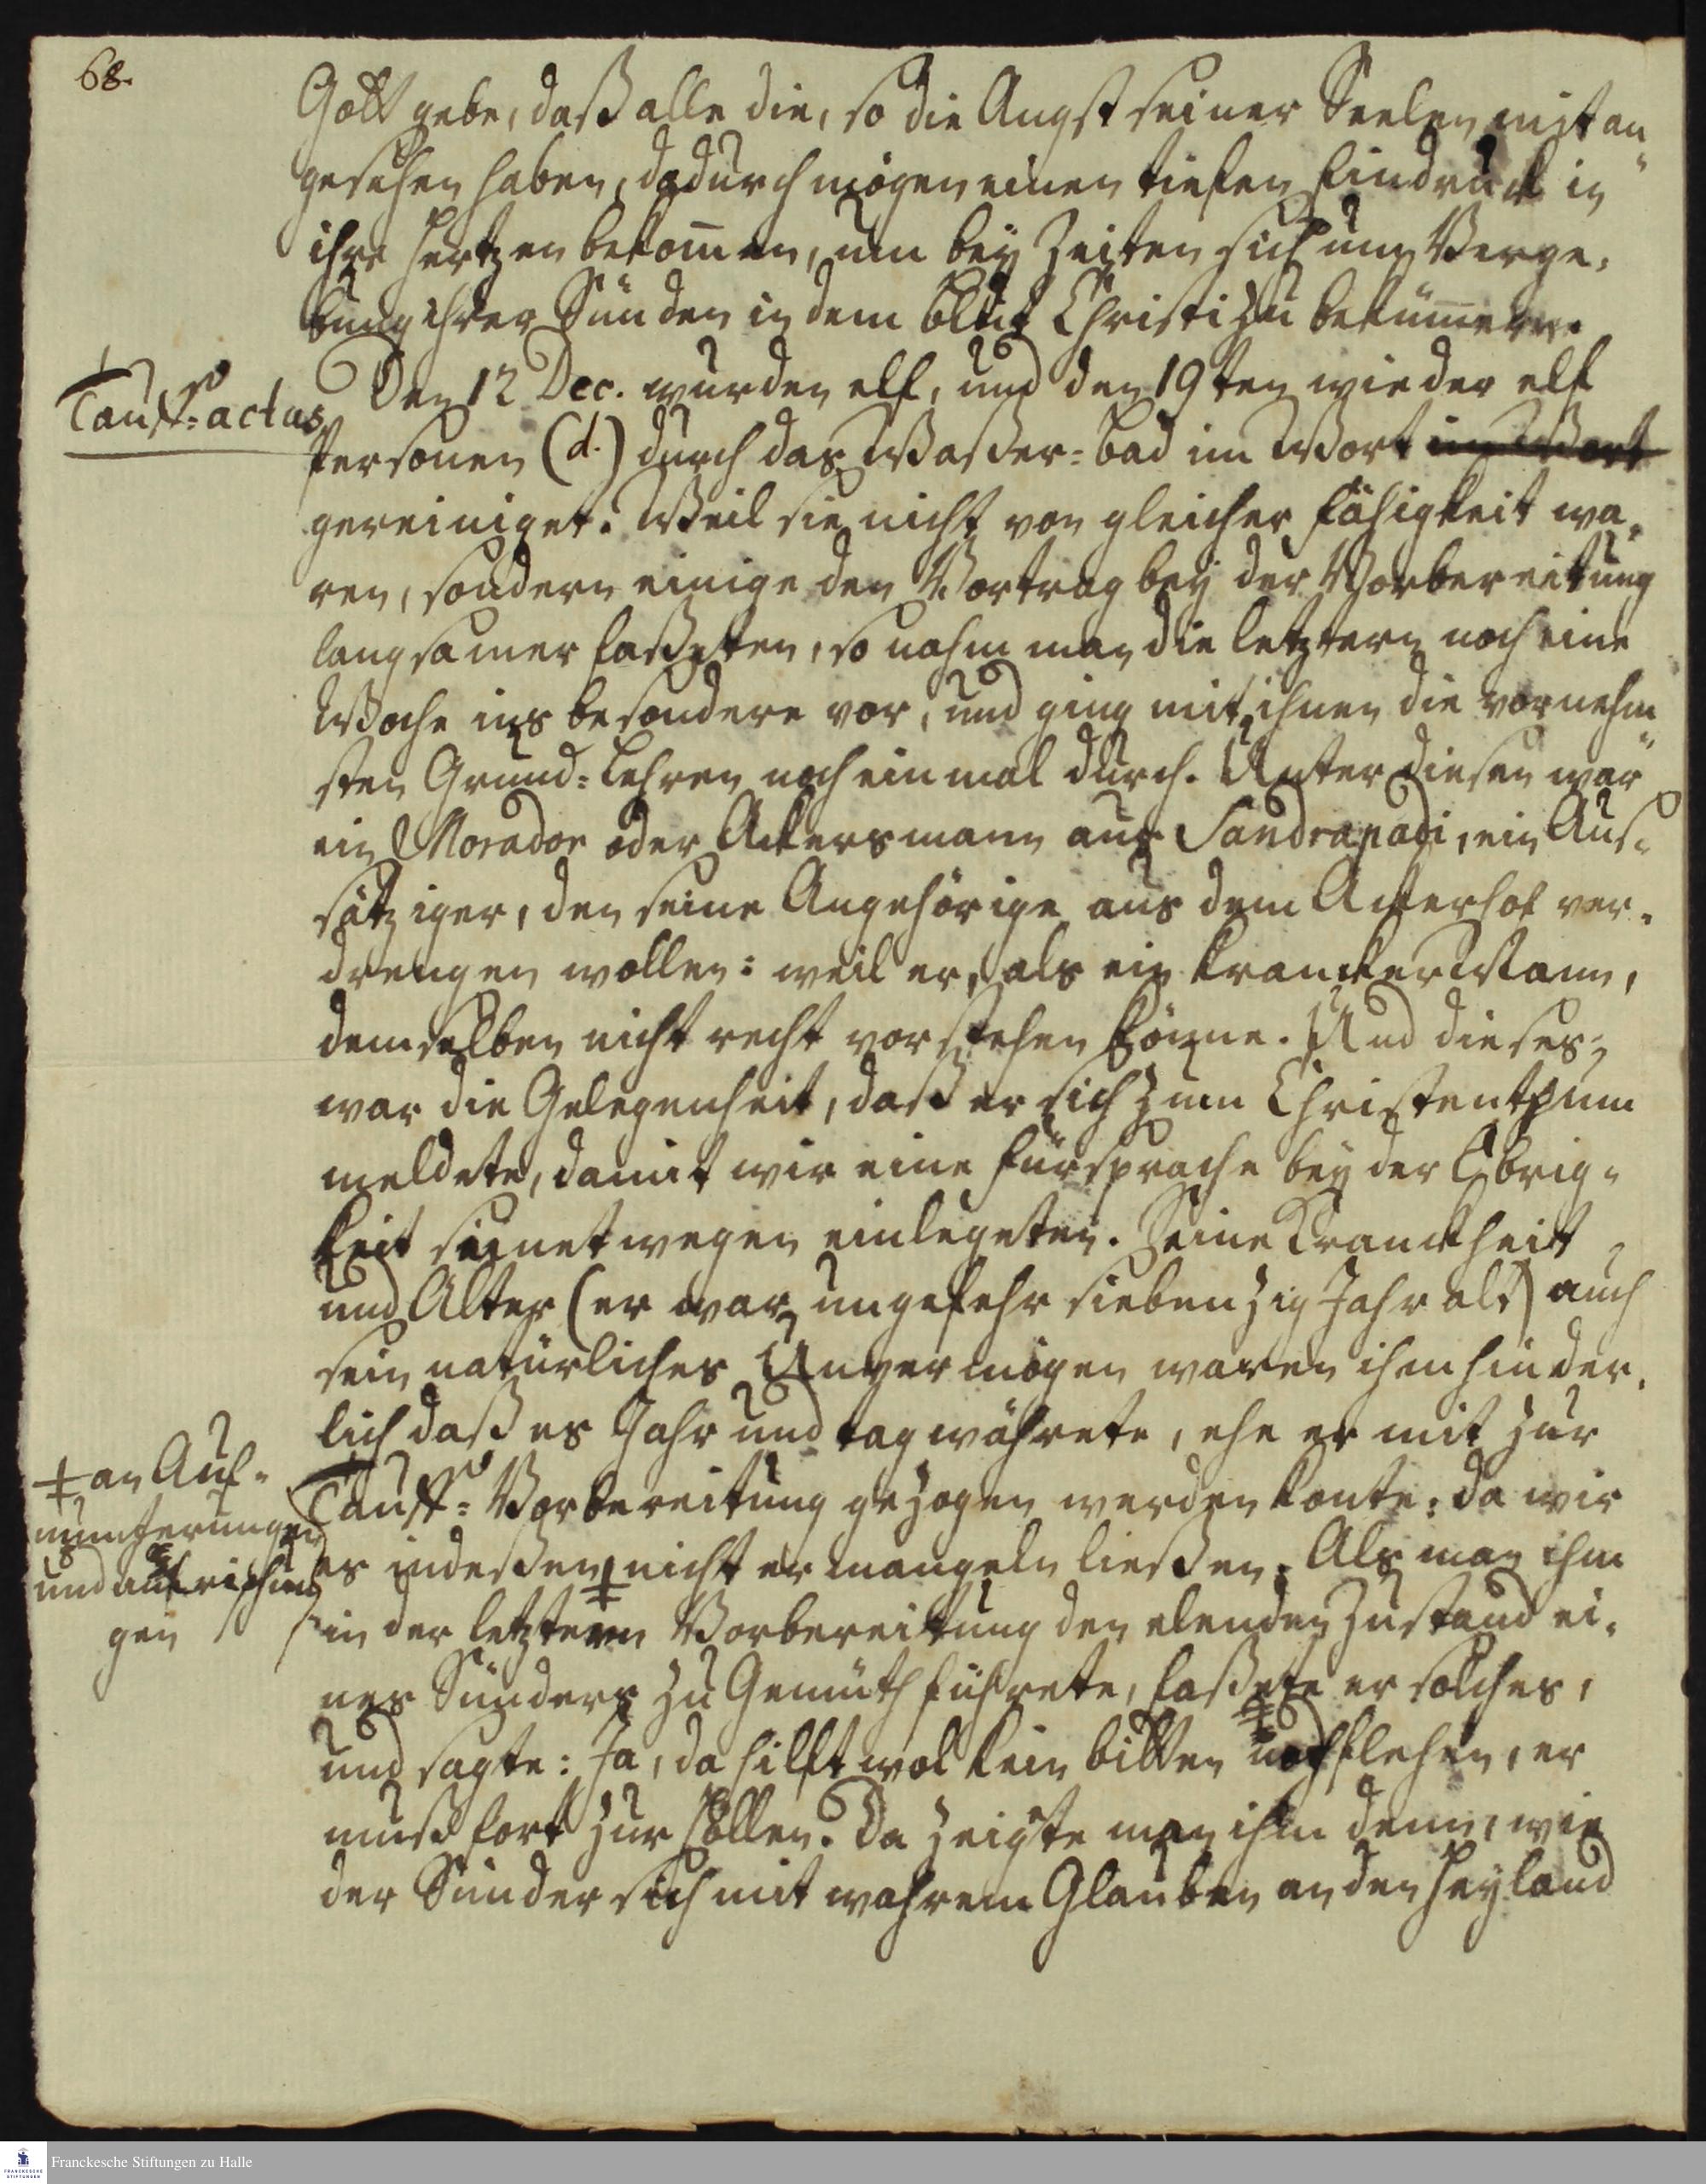 68.
Gott gebe, daß alle die, so die Angst seiner Seelen mit an„
gesehen haben, dadurch mögen einen tiefen Eindruck in
ihre Hertzen bekom̄en, um bey Zeiten sich um Verge„
bung ihrer Sünden in dem Blut Christi zu beküm̄ern.
Tauff-actus
Den 12 Dec. wurden elf, und den 19ten wieder elf
Personen (d.) durch das Waßer-Bad im Wort im Wort
gereiniget. Weil sie nicht von gleicher Fähigkeit wa„
ren, sondern einige den Vortrag bey der Vorbereitung
langsamer faßeten, so nahm man die letztern noch eine
Woche ins besondere vor, und ging mit ihnen die vornehm„
sten Grund-Lehren noch einmal durch. Unter diesen war
ein Morador oder Ackersmann aus Sandrapadi, ein Aus„
sätziger, den seine Angehörige aus dem Ackerhof ver„
drengen wollen: weil er, als ein krancker Mann,
demselben nicht recht vorstehen könne. Und dieses
war die Gelegenheit, daß er sich zum Christenthum
meldete, damit wir eine Fürsprache bey der Obrig„
keit seinetwegen einlegeten. Seine Kranckheit
und Alter (er war ungefehr siebenzig Jahr alt) auch
sein natürliches Unvermögen waren ihm hinder„
lich daß es Jahr und tag währete, ehe er mit zur
Tauff-Vorbereitung gezogen werden konte: da wir
‡ an Auf„
munterungen
und aufrichtun
gen
es indeßen ‡ nicht ermangeln ließen. Als man ihm
in der letztern Vorbereitung den elenden Zustand ei„
nes Sünders zu Gemüth führete, faßete er solches,
und sagte: Ja, da hilft wol kein bitten noch flehen, er
muß fort zur Höllen. Da zeigte man ihm denn, wie
der Sünder sich mit wahrem Glauben an den Heyland
Franckesche Stiftungen zu Halle
FRANCKESCHE
STIFTUNGEN